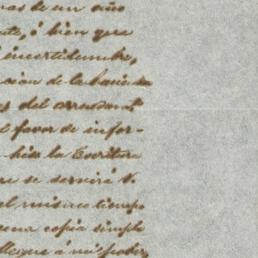 mas de un año
ó bien que
incertidumbre,
sion de la hacienda
del arrendam.to
el favor de infor-
hizo la Escritura
se servirá V.
el mismo tiempo
una copia simple
llegue á mi poder